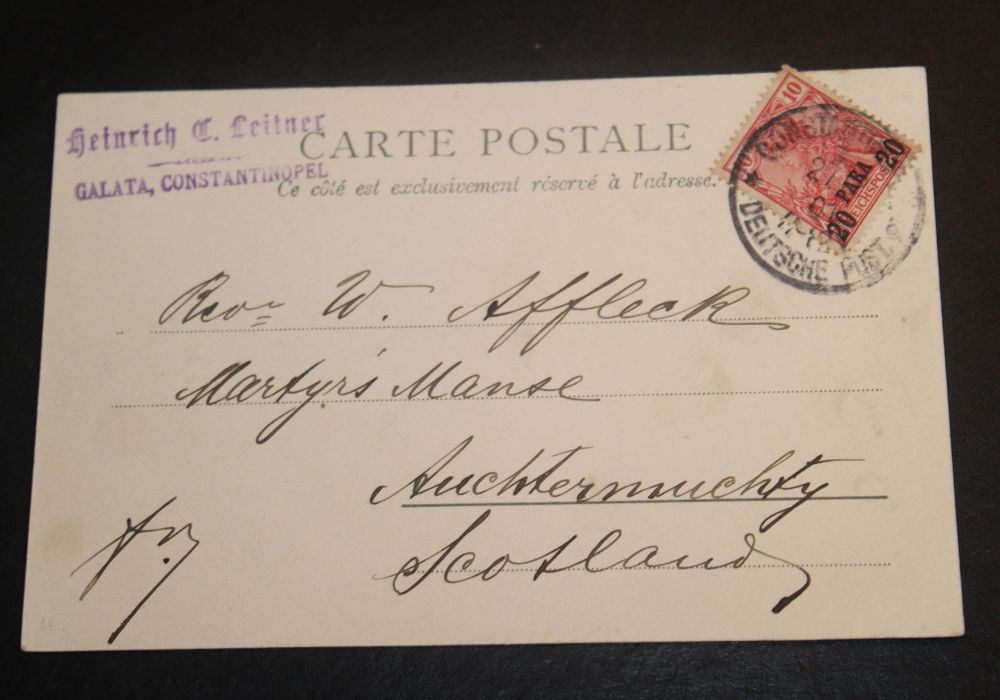 Heinrich C. Leitner
GALATA, CONSTANTINOPEL
CARTE POSTALE
Ce côté est exclusivement réservé à l'adresse.
10
20 PARA 20
REICHSPOST
DEUTSCHE POST
Rev. W. Affleck
Martyrs Manse
Auchtermuchty
Scotland